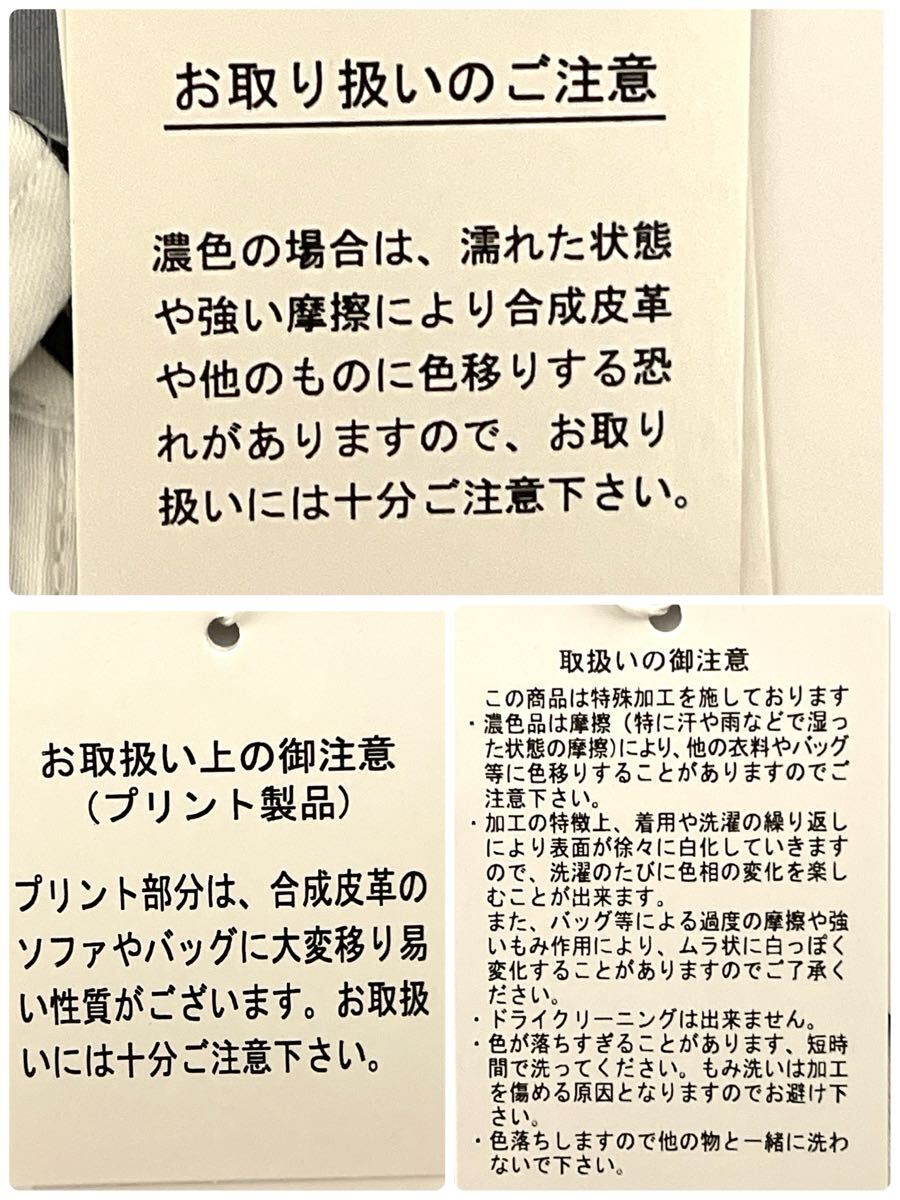 お取り扱いのご注意
濃色の場合は、濡れた状態
や強い摩擦により合成皮革
や他のものに色移りする恐
れがありますので、お取り
扱いには十分ご注意下さい。
お取扱い上の御注意
(プリント製品)
プリント部分は、合成皮革の
ソファやバッグに大変移り易
い性質がございます。お取扱
いには十分ご注意下さい。
取扱いの御注意
この商品は特殊加工を施しております
・濃色品は摩擦(特に汗や雨などで湿っ
た状態の摩擦)により、他の衣料やバッグ
等に色移りすることがありますのでご
注意下さい。
・加工の特徴上、着用や洗濯の繰り返し
により表面が徐々に白化していきます
ので、洗濯のたびに色相の変化を楽し
むことが出来ます。
また、バッグ等による過度の摩擦や強
いもみ作用により、ムラ状に白っぽく
変化することがありますのでご了承く
ださい。
・ドライクリーニングは出来ません。
・色が落ちすぎることがあります、短時
間で洗ってください。もみ洗いは加工
を傷める原因となりますのでお避け下
さい。
・色落ちしますので他の物と一緒に洗わ
ないで下さい。